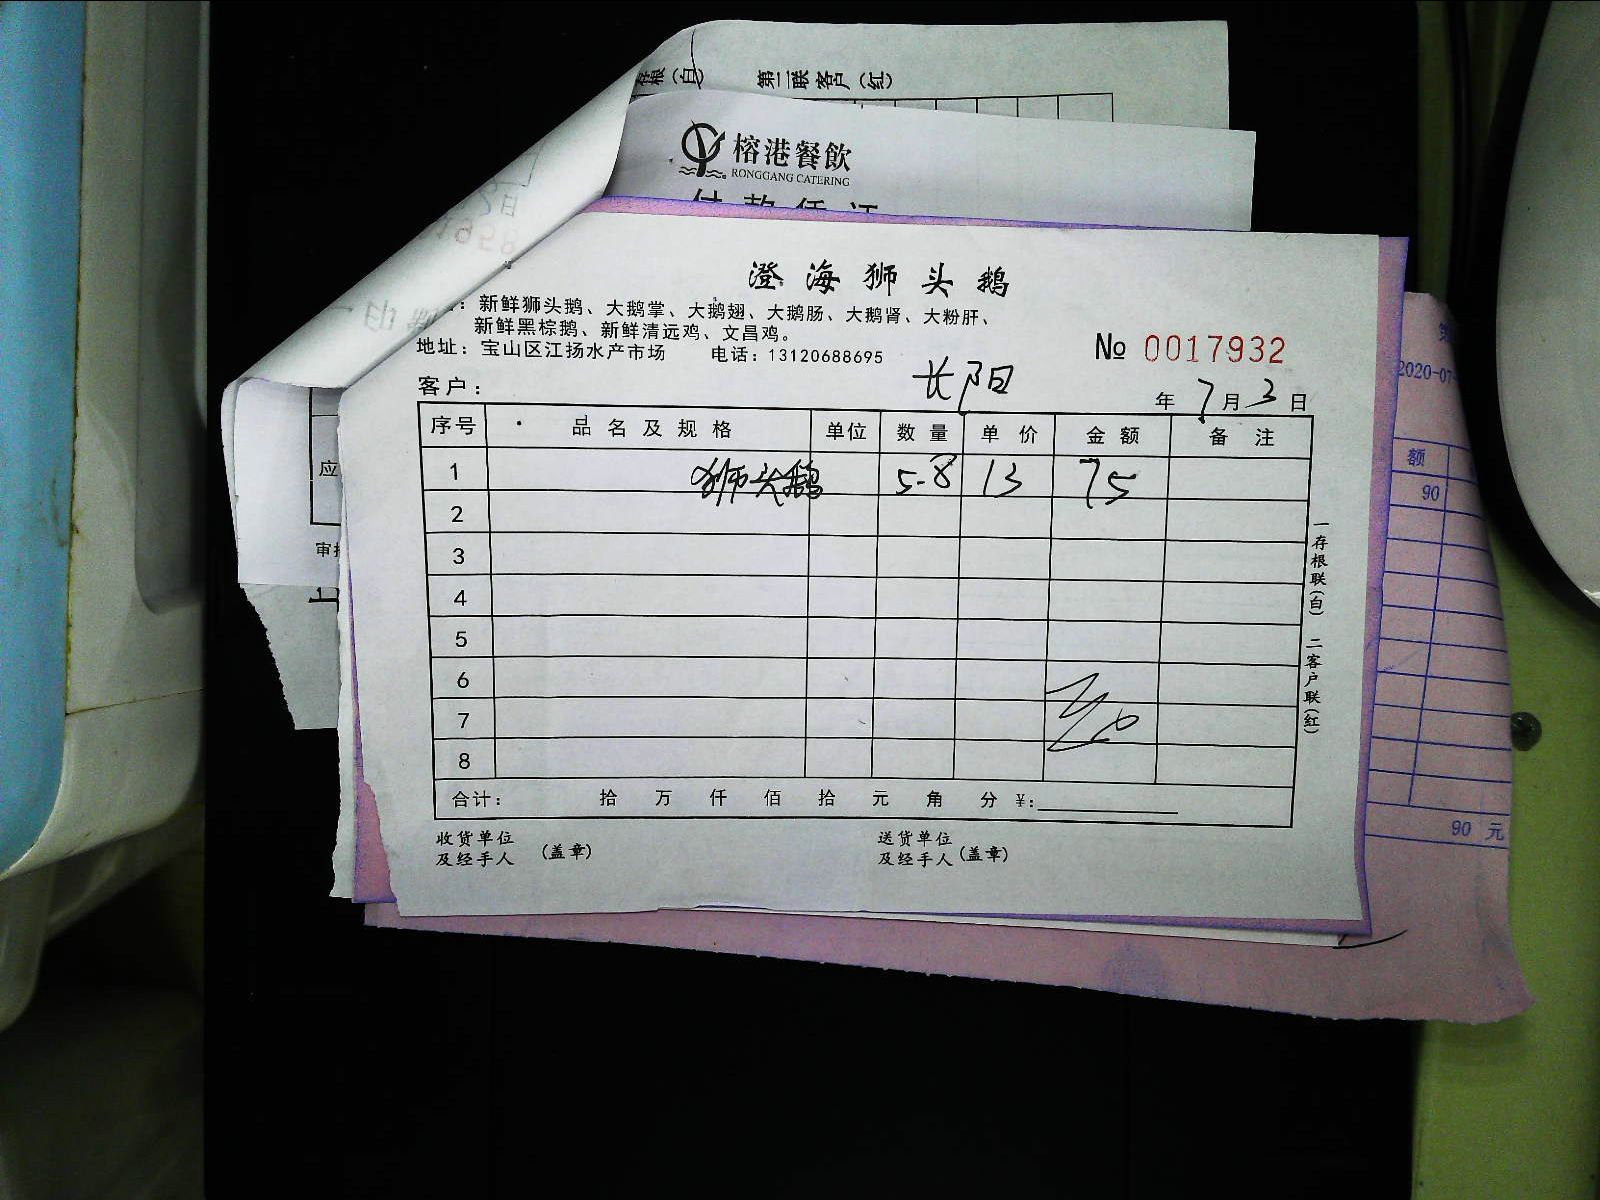 存根(白) 第二联客户(红)
榕港餐飲
RONGGANG CATERING
付款凭证
澄海狮头鹅
新鲜狮头鹅、大鹅掌、大鹅翅、大鹅肠、大鹅肾、大粉肝、
新鲜黑棕鹅、新鲜清远鸡、文昌鸡。
地址：宝山区江扬水产市场 电话：13120688695
№ 0017932
客户： 长阳 年 7月3日
序号 品名及规格 单位 数量 单价 金额 备注
1 狮头鹅 5.8 13 75
2
3
4
5
6
7
8
合计： 拾 万 仟 佰 拾 元 角 分 ¥:
收货单位 送货单位
及经手人 (盖章) 及经手人 (盖章)
一存根联(白) 二客户联(红)
应
审
2020-07
额
90
90 元